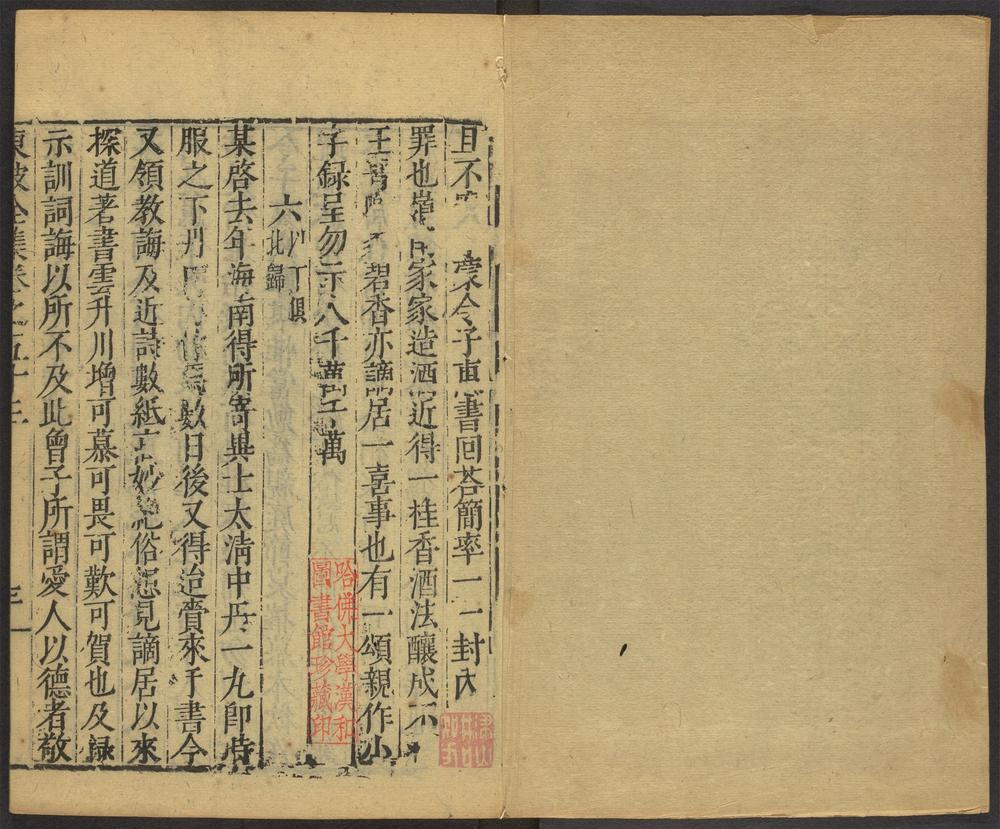 且不 蒙令子 書回荅簡率一一封内
罪也嶺 家家造酒近得一桂香酒法釀成不
王 碧香亦謫居一喜事也有一頌親作小
字録呈勿示人千萬千萬
六以下俱北歸
某啓去年海南得所寄異士太清中丹一丸即時
服之下丹田 數日後又得迨賫來手書今
又領教誨及近詩數紙 妙絶俗 見謫居以來
探道著書雲升川增可慕可畏可歎可賀也及録
示訓詞誨以所不及此曾子所謂愛人以德者敬
東坡全集卷之五十三 三一
哈佛大學漢和
圖書館珍藏印